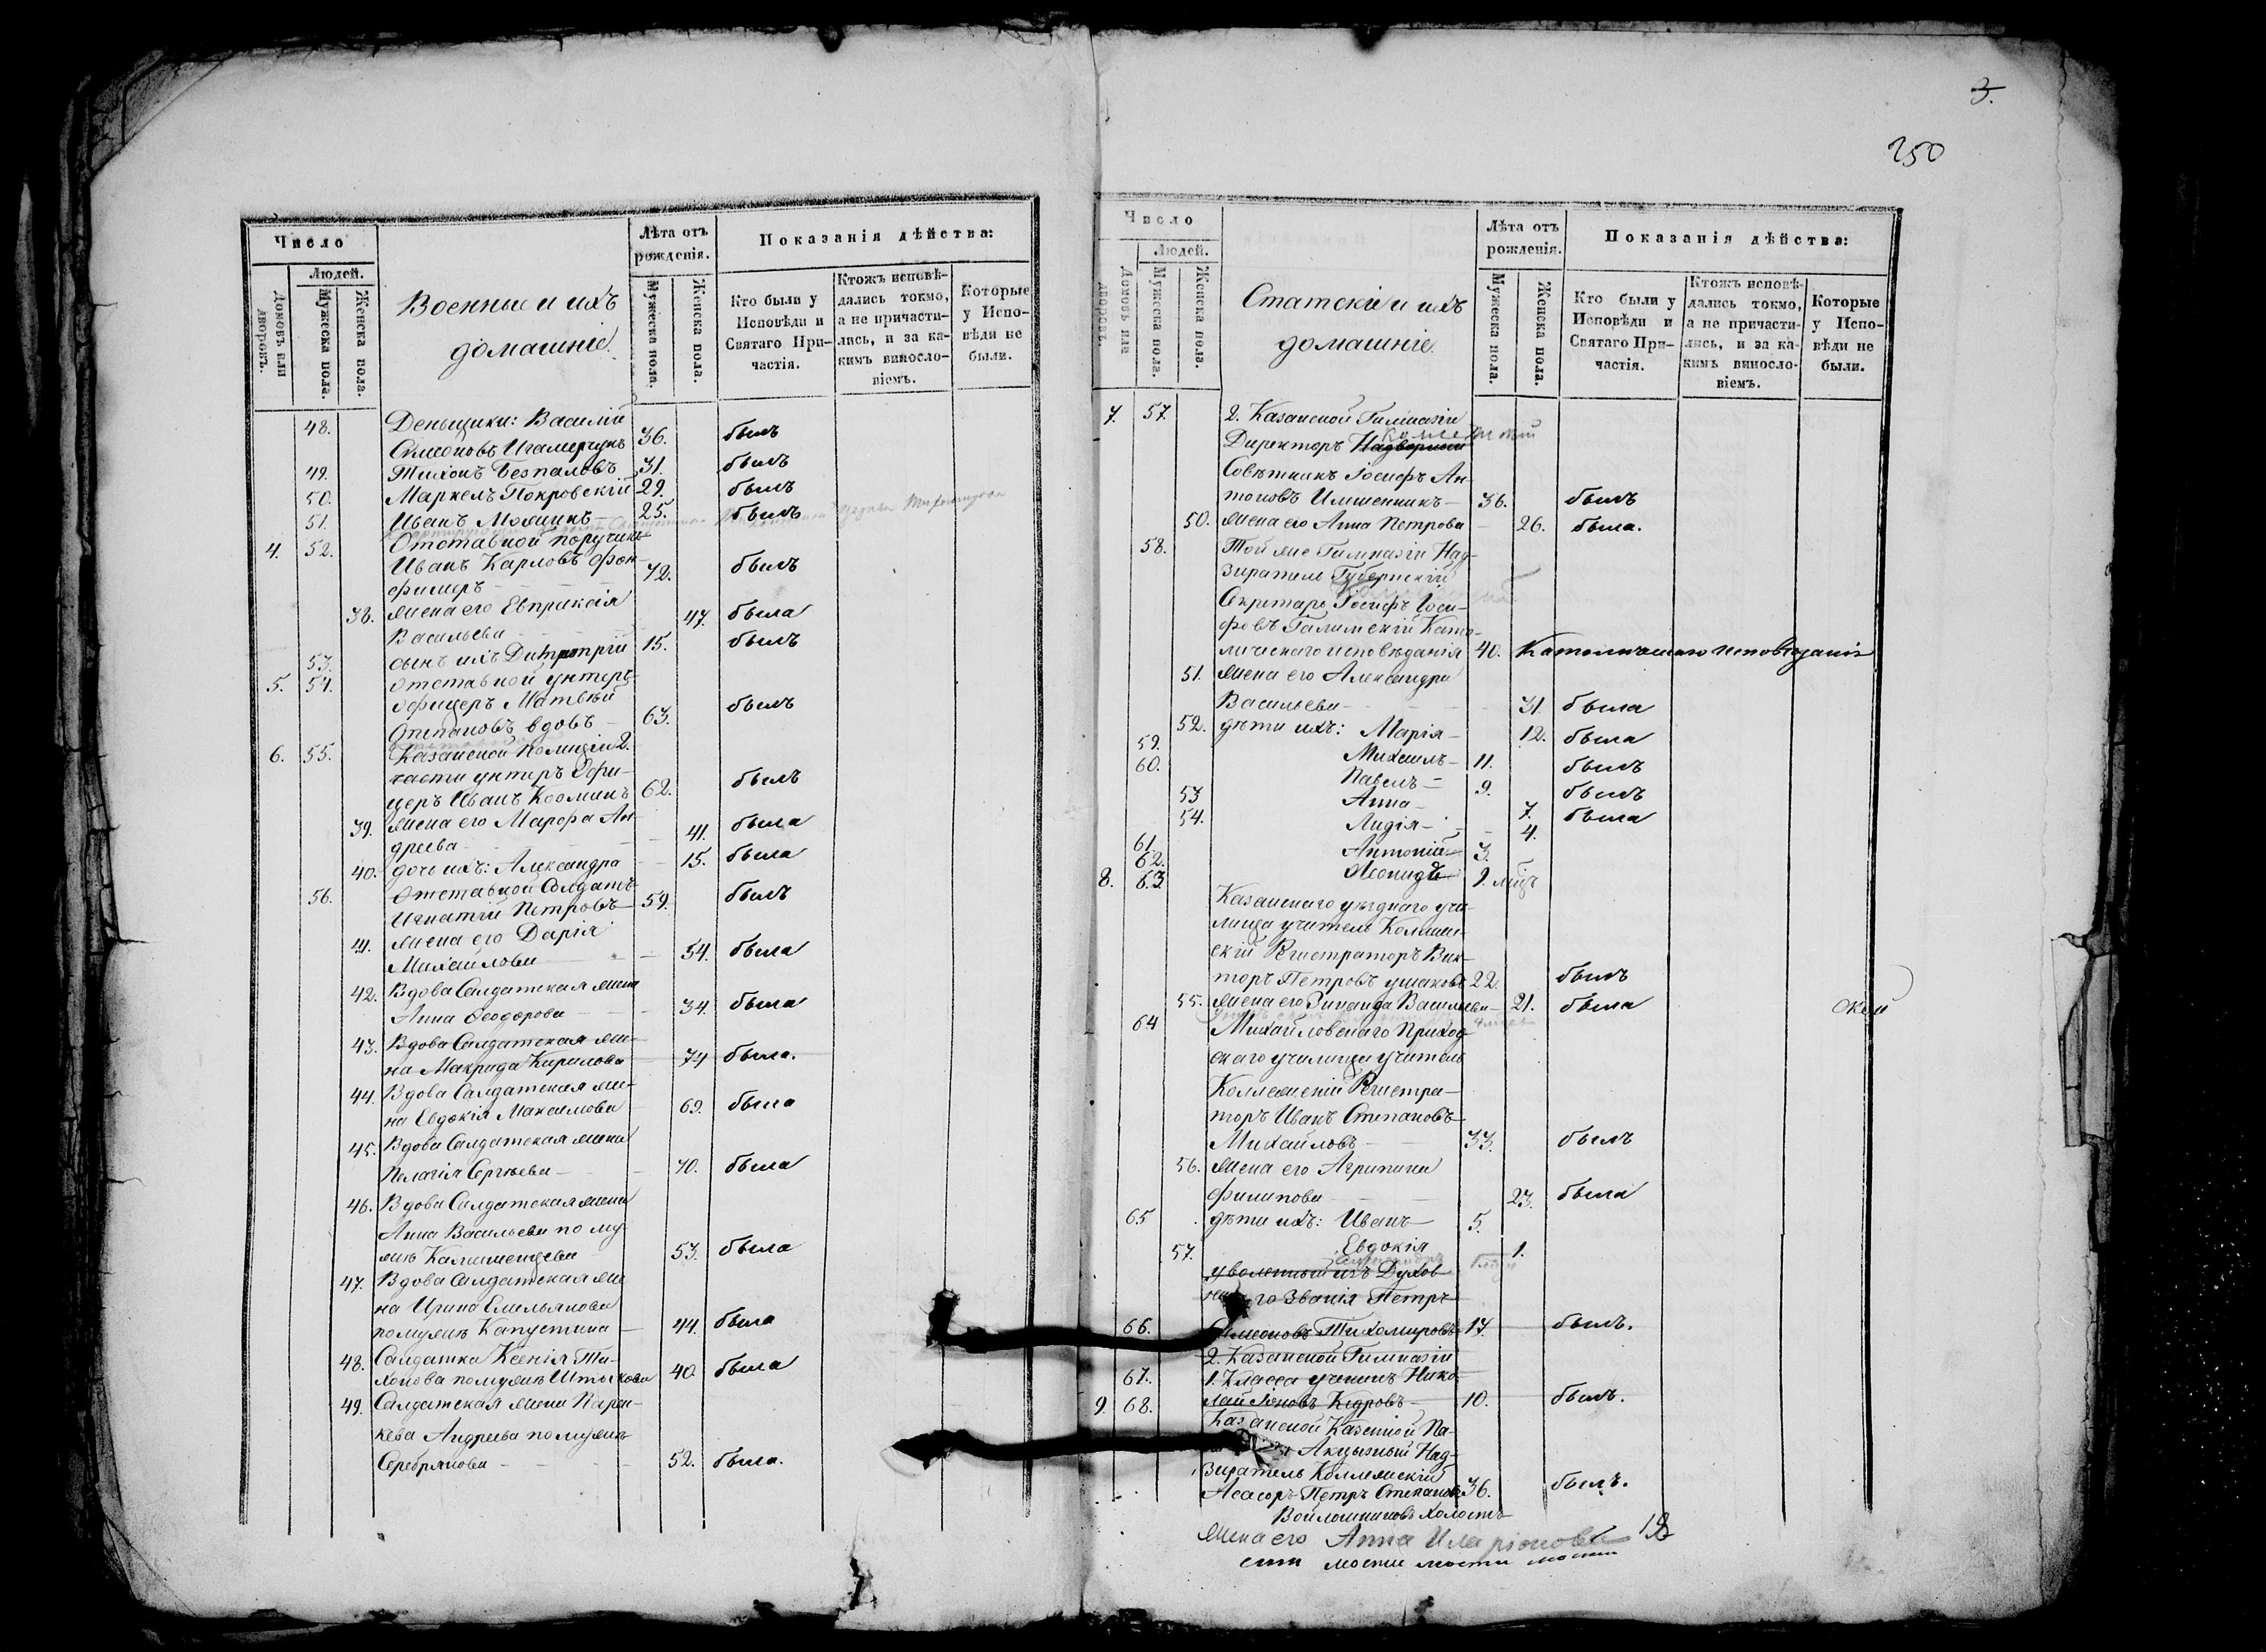 3.
250
Число
Людей.
Домовъ или дворовъ.
Мужеска пола.
Женска пола.
Военные и ихъ
домашніе.
Лѣта отъ
рожденія.
Мужеска пола.
Женска пола.
Показанія дѣйства:
Кто были у
Исповѣди и
Святаго При-
частія.
Ктожъ исповѣ-
дались токмо,
а не причасти-
лись, и за ка-
кимъ винословіемъ.
Которые
у Испо-
вѣди не
были.
48. Деньщики: Василій
Симеоновъ 36. былъ
49. Тихонъ Безпаловъ 31. былъ
50. Маркелъ Покровскій 29. былъ
51. Иванъ 25. былъ
4. 52. Отставной поручикъ
Иванъ Карловъ Фон
72. былъ
38. жена его Евпраксія
Васильева 47. была
53. сынъ ихъ Димитрій 15. былъ
5. 54. Отставной унтеръ-
офицеръ Матвѣй
Степановъ вдовъ 63. былъ
6. 55. Казанской Полиціи 2.
части унтеръ Офи-
церъ Иванъ 62. былъ
39. жена его Марфа Ан-
дреева 41. была
40. дочь ихъ: Александра 15. была
56. Отставной Солдатъ
Игнатій Петровъ 59. былъ
41. жена его Дарія
Михайлова 54. была
42. Вдова Солдатская жена
Анна Ѳеодорова 34. была
43. Вдова Солдатская же-
на Макрида Кирилова 74 была.
44. Вдова Солдатская же-
на Евдокія Максимова 69. была
45. Вдова Солдатская жена
Пелагія Сергѣева 70. была
46. Вдова Солдатская жена
Анна Васильева по му-
жѣ 53. была
47. Вдова Солдатская же-
на Ирина Емельянова
по мужѣ Капустина 44. была
48. Солдатка Ксенія Ти-
хонова по мужѣ Штыкова 40. была
49. Солдатская жена Парас-
кева Андреева по мужѣ
Серебрякова 52. была.
Число
Людей.
Домовъ или дворовъ.
Мужеска пола.
Женска пола.
Статскіе и ихъ
домашніе.
Лѣта отъ
рожденія.
Мужеска пола.
Женска пола.
Показанія дѣйства:
Кто были у
Исповѣди и
Святаго При-
частія.
Ктожъ исповѣ-
дались токмо,
а не причасти-
лись, и за ка-
кимъ винословіемъ.
Которые
у Испо-
вѣди не
были.
7. 57. 2. Казанской Гимназіи
Директоръ Надворный
Совѣтникъ Іосифъ Ан-
тоновъ 36. былъ
50. жена его Анна Петрова 26. была.
58. Той же Гимназіи Над-
зиратель Губернскій
Секретарь Іосифъ Іоси-
фовъ Като-
лическаго исповѣданія 40. Католическаго исповѣданія
51. жена его Александра
Васильева 31. была
52. дѣти ихъ: Марія 12. была
59. Михаилъ 11. былъ
60. Павелъ 9. былъ
53 Анна 7. была
54. Лидія 4.
61. Антоній 3.
62. Леонидъ 9. мѣц
8. 63. Казанскаго уѣзднаго учи-
лища учитель Коллеж-
скій Регистраторъ Вик-
торъ Петровъ Ушаковъ 22. былъ
55. жена его Зинаида Васильева 21. была
64 Михайловскаго Приход-
скаго училища учитель
Коллежскій Регистра-
торъ Иванъ Степановъ
Михайловъ 33. былъ
56. жена его Агрипина
Филипова 23. была
65 дѣти ихъ: Иванъ 5.
57. Евдокія 1.
уволенный изъ Духов
наго Званія Петръ
66. Симеоновъ Тихомировъ 17. былъ.
2. Казанской Гимназіи
67. 1. Класса ученикъ Нико-
лай Кедровъ 10. былъ.
9. 68. Казанской Казенной Па-
латы Акцызный Над-
зиратель Коллежскій
Асесоръ Петръ Степановъ 36. былъ.
Войлошниковъ холостъ
жена его Анна Иларіонова 18